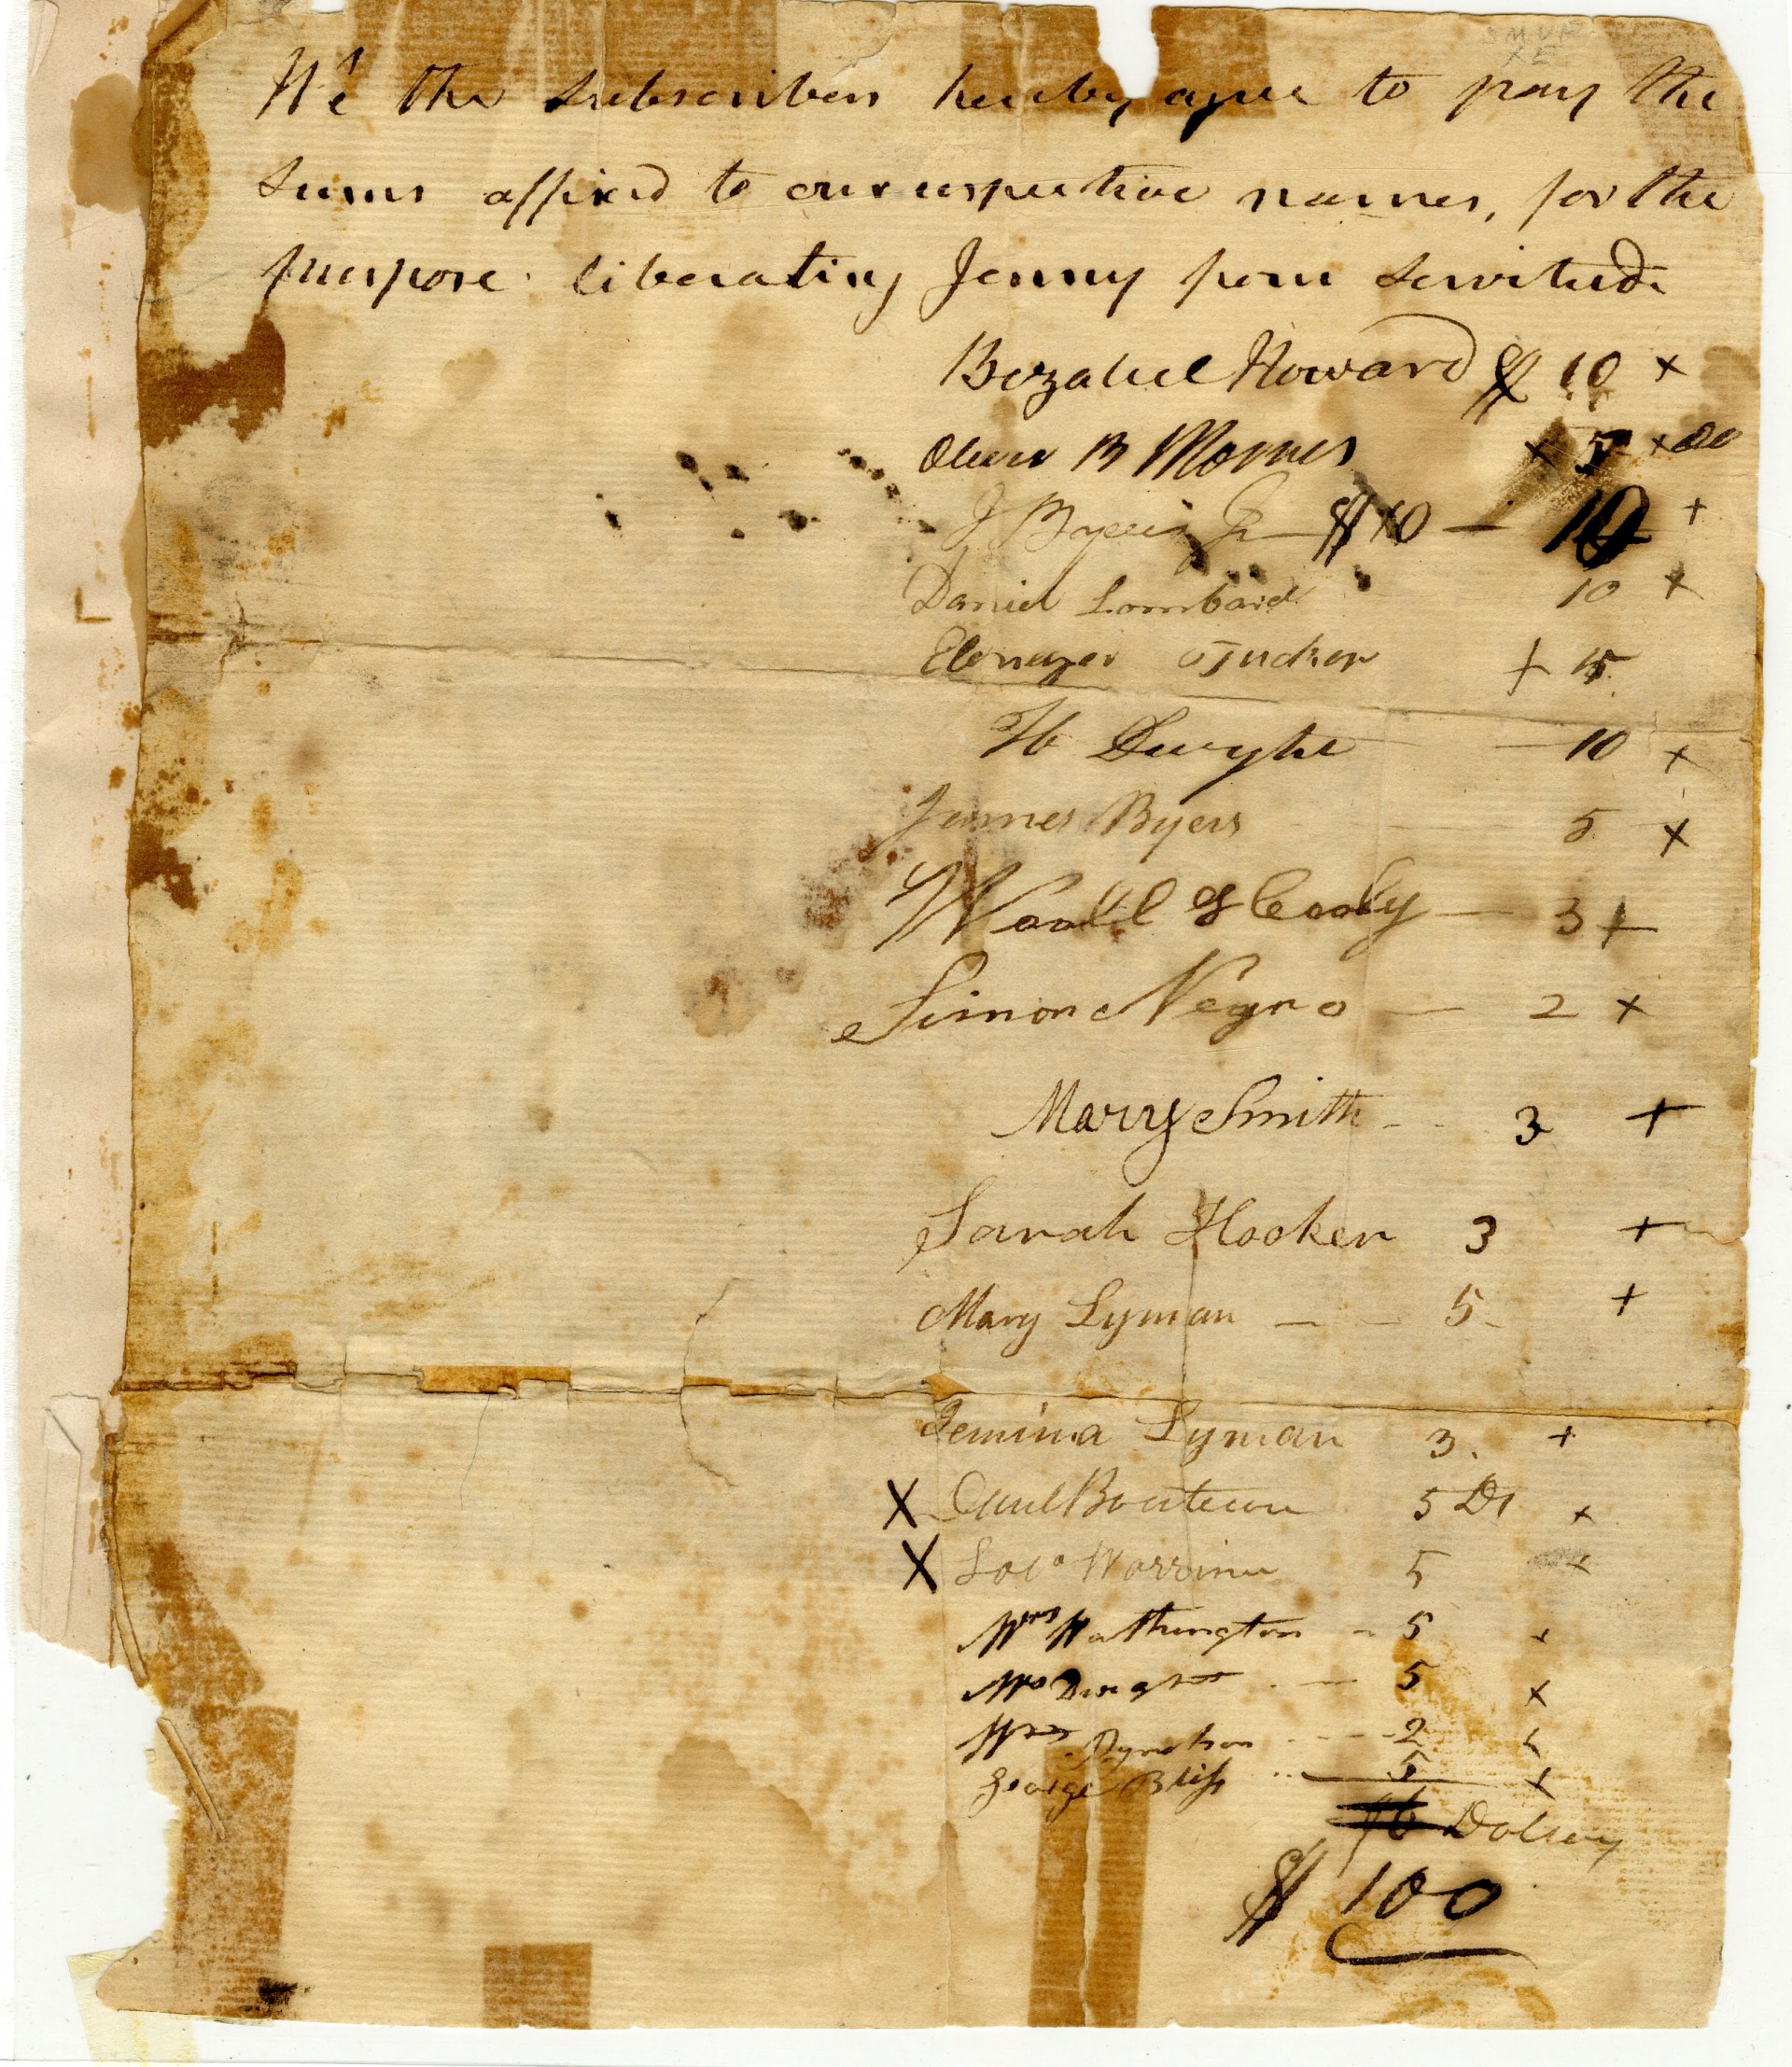 We the Subscribers hereby agree to pay the
Sums affixed to our respective names, for the
purpose liberating Jenny from Servitude
Bezaleel Howard $ 10 x
Oliver B Morris x 5 x
J Byers Jr $10 — 10 +
Daniel Lombard 10 x
Ebenezer Tucker + 5
Dwight — 10 x
James Byers 5 x
& Cooley — 3 +
Simon Negro — 2 x
Mary Smith 3 +
Sarah Hooker 3 +
Mary Lyman — 5 +
Jemima Lyman 3. +
X 5 x
X Warriner 5 x
Mrs Wathington - 5 x
Mrs Dwight — 5 x
Mrs Pynchon 2 x
George Bliss 5 x
$ 100